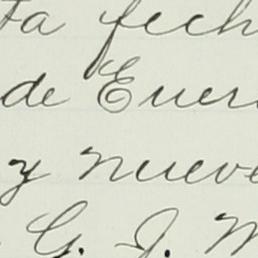 ta fech
de Euer
y nueve
G. J. M